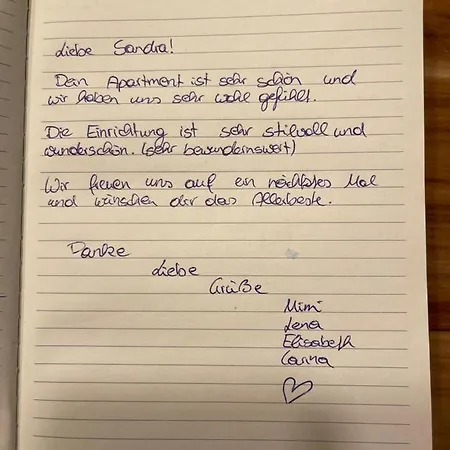 Liebe Sandra!
Dein Apartment ist sehr schön und
wir haben uns sehr wohl gefühlt.
Die Einrichtung ist sehr stilvoll und
wunderschön. (sehr bewundernswert)
Wir freuen uns auf ein nächstes Mal
und wünschen dir das Allerbeste.
Danke
Liebe
Grüße
Mimi
Lena
Elisabeth
Carina